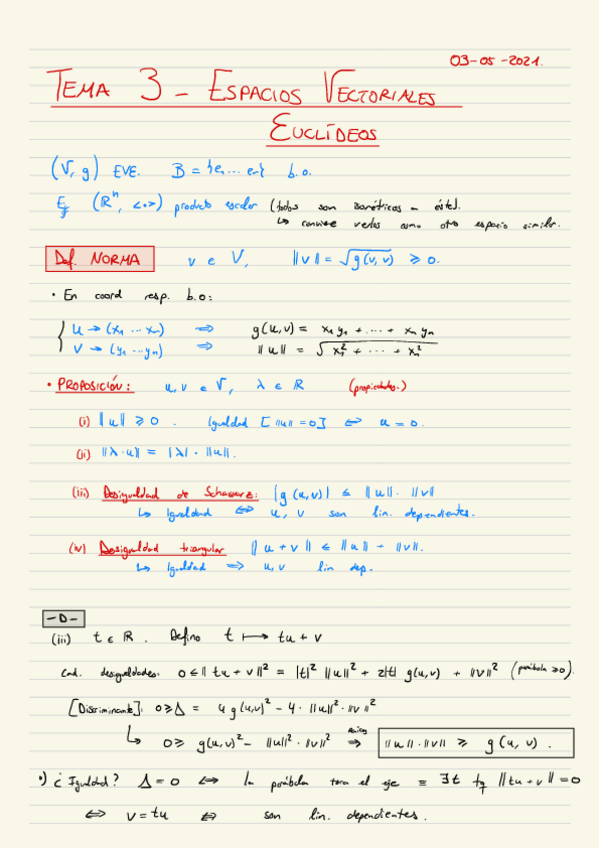 03-05-2021.
TEMA 3 - ESPACIOS VECTORIALES
EUCLÍDEOS
(V, g) EVE. B = {e1 ... en} b.o.
Ej (Rⁿ, <·,·>) producto escalar (todos son isométricos a éste).
↳ conviene verlos como otro espacio similar.
Def. NORMA v ∈ V, ||v|| = √g(v,v) ≥ 0.
• En coord resp. b.o:
{ u → (x1 ... xn) ⇒ g(u,v) = x1y1 + ... + xnyn
v → (y1 ... yn) ⇒ ||u|| = √x1² + ... + xn²
• PROPOSICIÓN: u, v ∈ V, λ ∈ R (propiedades.)
(i) ||u|| ≥ 0. Igualdad [||u|| = 0] ⇔ u = 0.
(ii) ||λ·u|| = |λ|·||u||.
(iii) Desigualdad de Schawarz: |g(u,v)| ≤ ||u||·||v||
↳ Igualdad ⇔ u, v son lin. dependientes.
(iv) Desigualdad triangular ||u + v|| ≤ ||u|| + ||v||.
↳ Igualdad ⇒ u, v lin dep.
-D-
(iii) t ∈ R. Defino t ⟼ tu + v
Cad. desigualdades: 0 ≤ ||tu + v||² = |t|² ||u||² + 2|t| g(u,v) + ||v||² (parábola ≥ 0).
[Discriminante]: 0 ≥ Δ = 4g(u,v)² - 4·||u||²·||v||²
↳ 0 ≥ g(u,v)² - ||u||²·||v||² ⇒ ||u||·||v|| ≥ g(u, v).
•) ¿Igualdad? Δ = 0 ⇔ la parábola toca el eje ≡ ∃t tq ||tu + v|| = 0
⇔ v = tu ⇔ son lin. dependientes.